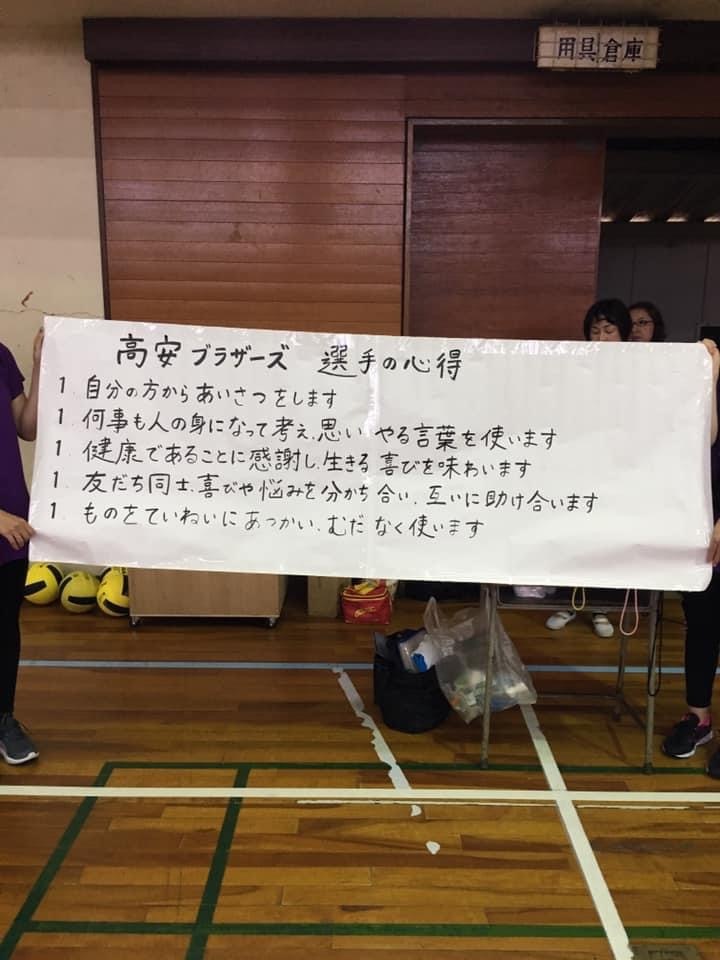 用具倉庫
高安ブラザーズ 選手の心得
1. 自分の方からあいさつをします
1. 何事も人の身になって考え、思いやる言葉を使います
1. 健康であることに感謝し、生きる喜びを味わいます
1. 友だち同士、喜びや悩みを分かち合い、互いに助け合います
1. ものをていねいにあつかい、むだなく使います